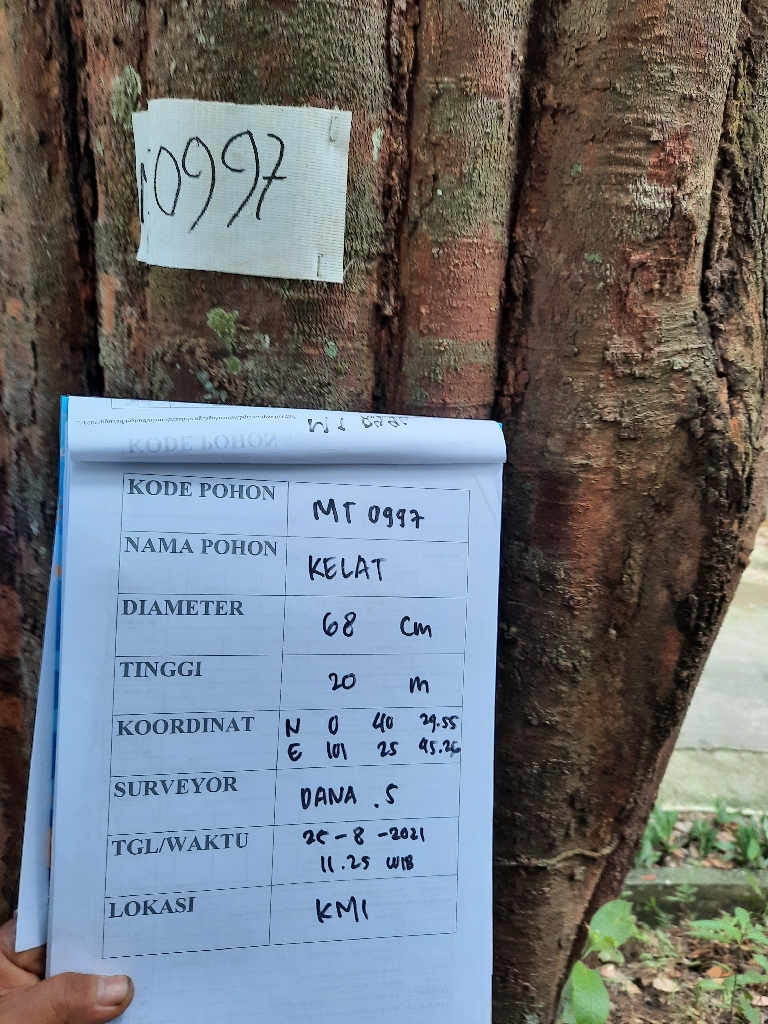 0997
KODE POHON
KODE POHON MT 0997
NAMA POHON KELAT
DIAMETER 68 Cm
TINGGI 20 m
KOORDINAT N 0 40 29.55
E 101 25 45.26
SURVEYOR DANA . S
TGL/WAKTU 25-8-2021
11.25 WIB
LOKASI KMI